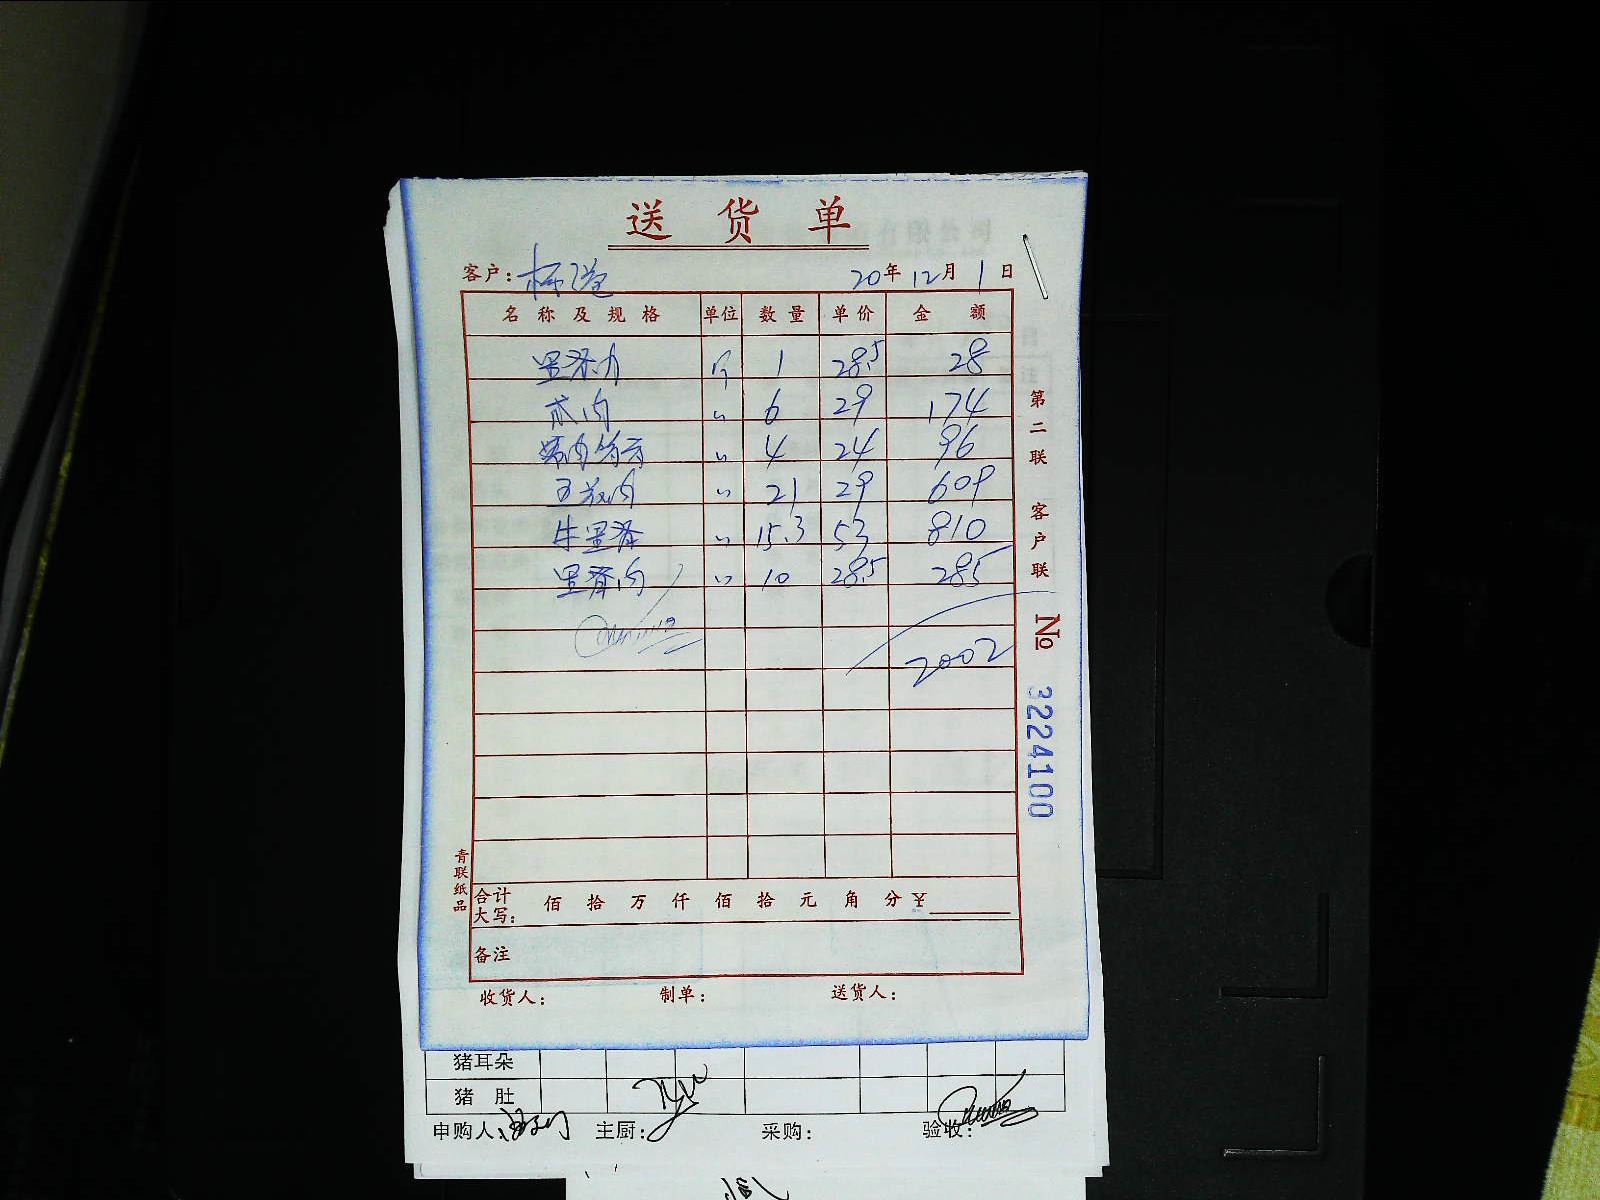 送货单
客户: 20年12月1日
名称及规格 单位 数量 单价 金额
里脊肉 斤 1 28.5 28
肉 〃 6 29 174
〃 4 24 96
五花肉 〃 21 29 609
牛里脊 〃 15.3 53 810
里脊肉 〃 10 28.5 285
2002
合计大写: 佰 拾 万 仟 佰 拾 元 角 分 ¥
备注
收货人: 制单: 送货人:
第二联 客户联
№ 3224100
青联纸品
猪耳朵
猪肚
申购人: 主厨: 采购: 验收: